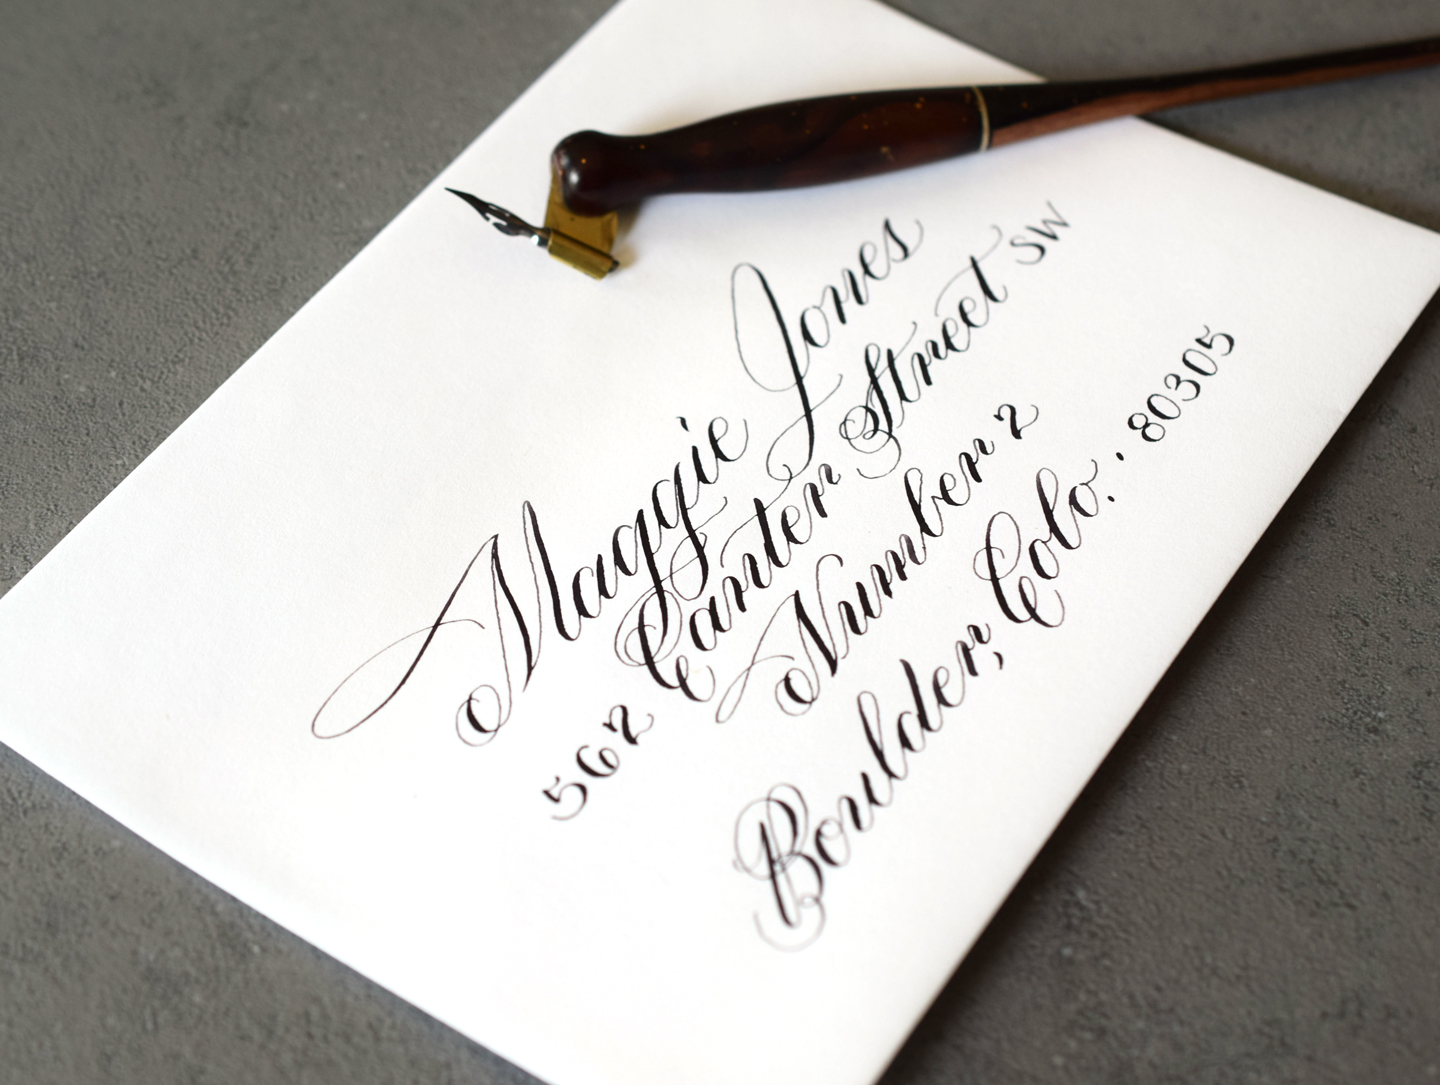 Maggie Jones
562 Canter Street SW
Number 2
Boulder, Colo. · 80305